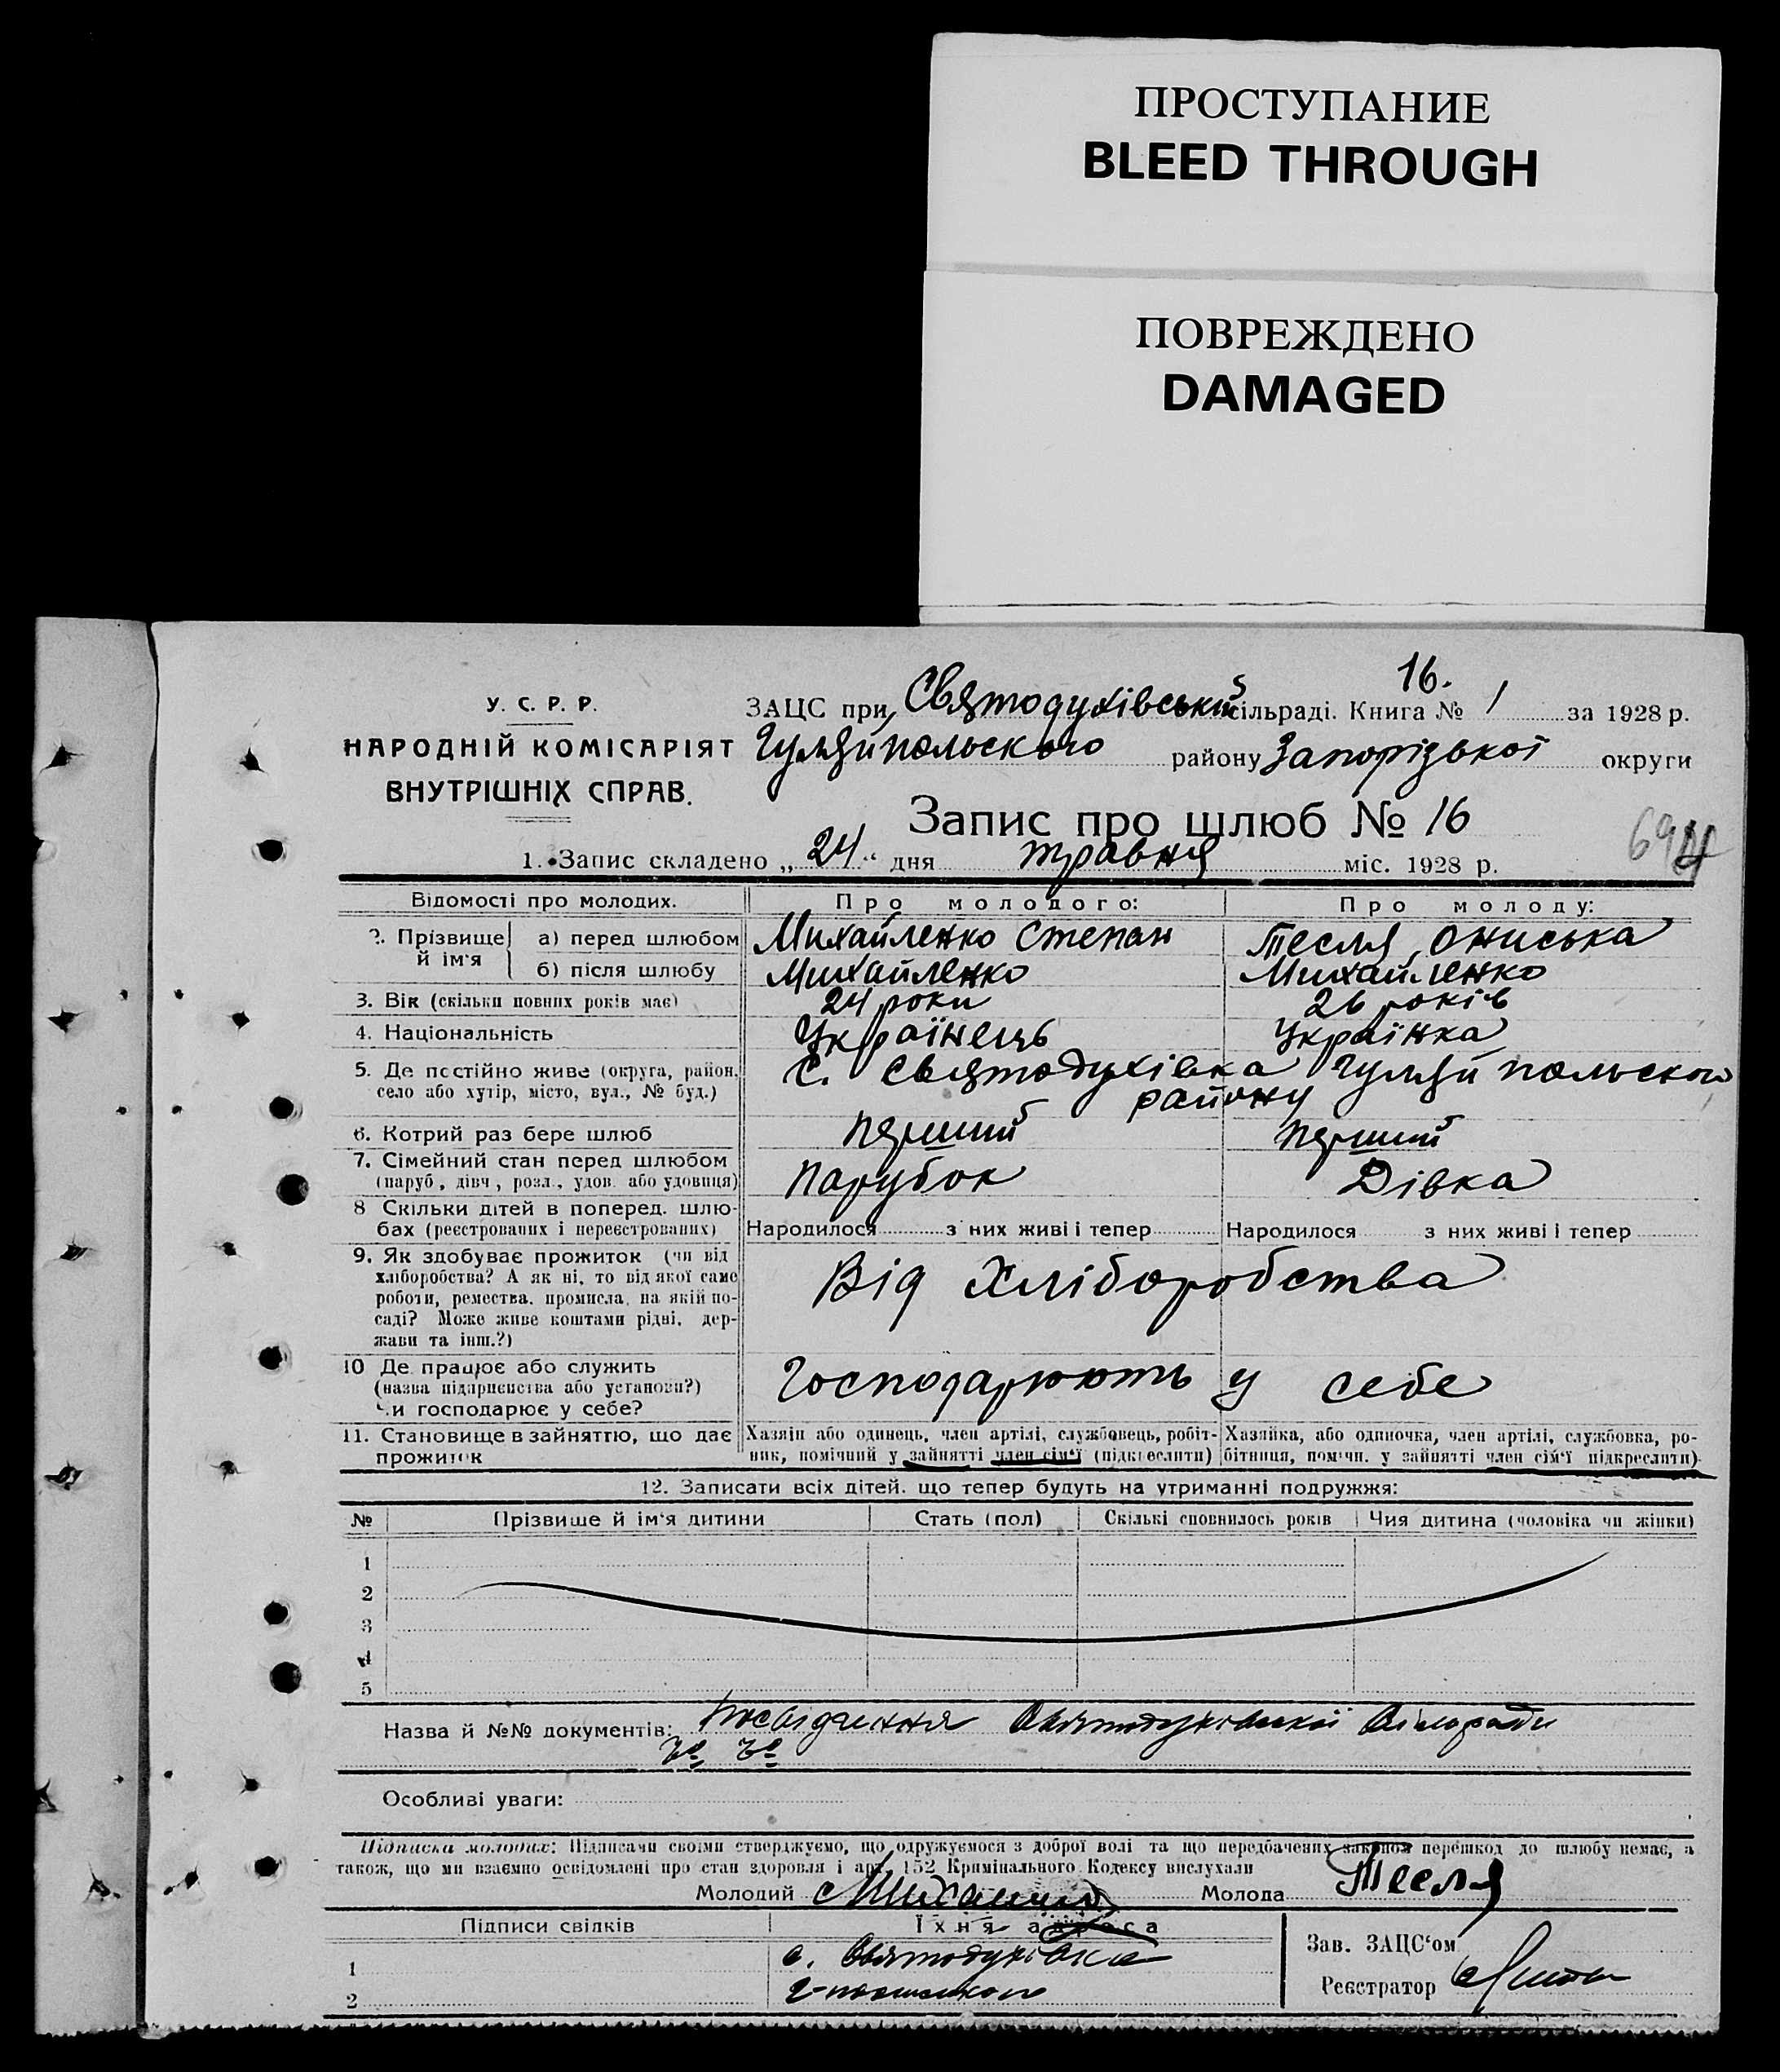 ПРОСТУПАНИЕ
BLEED THROUGH
ПОВРЕЖДЕНО
DAMAGED
16.
У. С. Р. Р.
НАРОДНІЙ КОМІСАРІЯТ
ВНУТРІШНІХ СПРАВ.
ЗАЦС при Святодухівській сільраді. Книга № 1 за 1928 р.
Гуляйпольского району Запорізької округи
Запис про шлюб № 16
694
1. Запис складено „24“ дня травня міс. 1928 р.
Відомості про молодих. Про молодого: Про молоду:
2. Прізвище й ім'я а) перед шлюбом Михайленко Степан Тесля, Ониська
б) після шлюбу Михайленко Михайленко
3. Вік (скільки повних років має) 24 роки 26 років
4. Національність Українець Українка
5. Де постійно живе (округа, район, село або хутір, місто, вул., № буд.) с. Святодухівка Гуляйпольского
району
6. Котрий раз бере шлюб перший перший
7. Сімейний стан перед шлюбом
(паруб., дівч., розл., удов. або удовиця) Парубок Дівка
8 Скільки дітей в поперед. шлю-
бах (реєстрованих і нереєстрованих) Народилося з них живі і тепер Народилося з них живі і тепер
9. Як здобуває прожиток (чи від
хліборобства? А як ні, то від якої саме
роботи, ремества, промисла, на якій по-
саді? Може живе коштами рідні, дер-
жави та інш.?)
Від Хліборобства
10 Де працює або служить
(назва підприємства або установи?)
Чи господарює у себе?
Господарюють у себе
11. Становище в зайняттю, що дає
прожиток
Хазяїн або одинець, член артілі, службовець, робіт-
ник, помічний у зайнятті член сім'ї (підкреслити)
Хазяйка, або одиночка, член артілі, службовка, ро-
бітниця, помічн. у зайнятті член сім'ї підкреслити)
12. Записати всіх дітей, що тепер будуть на утриманні подружжя:
№ Прізвище й ім'я дитини Стать (пол) Скількі сповнилось років Чия дитина (чоловіка чи жінки)
1
2
3
4
5
Назва й №№ документів: Посвідчення Святодухівської Сільради
Особливі уваги:
Підписка молодих: Підписами своїми стверджуємо, що одружуємося з доброї волі та що передбачених законом перешкод до шлюбу немає, а
також, що ми взаємно освідомлені про стан здоровля і арт. 152 Кримінального Кодексу вислухали
Молодий Молода Тесля
Підписи свідків Їхня адреса
Зав. ЗАЦС'ом
1 с. Святодухівка
Реєстратор
2